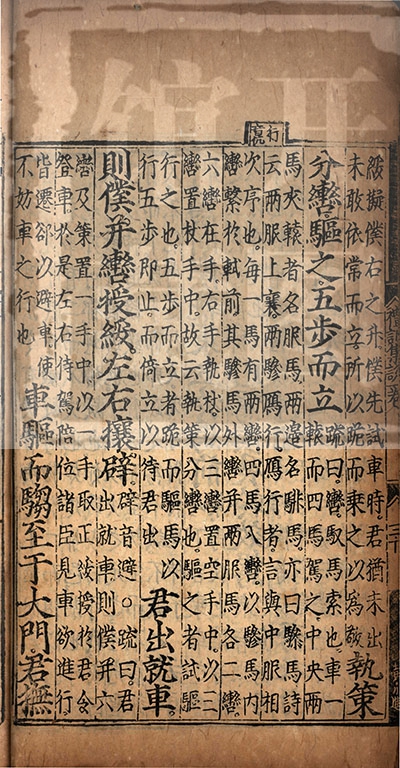 綏擬僕右之升僕先試車時君猶未出
未敢依常而立所以跪而乘之以爲敬
執策
分轡驅之五步而立
疏曰轡馭馬索也車一
轅而四馬駕之中央兩
馬夾轅者名服馬兩邊名騑馬亦曰驂馬詩
云兩服上襄兩驂鴈行鴈行者言與中服相
次序也每一馬有兩轡四馬八轡以驂馬內
轡繫於軾前其驂馬外轡并兩服馬各二轡
六轡在手右手執杖以三轡置空手中以三
轡置杖手中故云執策分轡也驅之者試驅
行之也五步而立者跪而驅馬以
行五步即止而倚立以待君出
君出就車
則僕并轡授綏左右攘辟
辟音避○疏曰君
出就車則僕并六
轡及策置一手中以一手取正綏授於君令
登車於是左右侍駕陪位諸臣見車欲進行
皆遷卻以避車使
不妨車之行也
車驅而騶至于大門君撫
行
三十